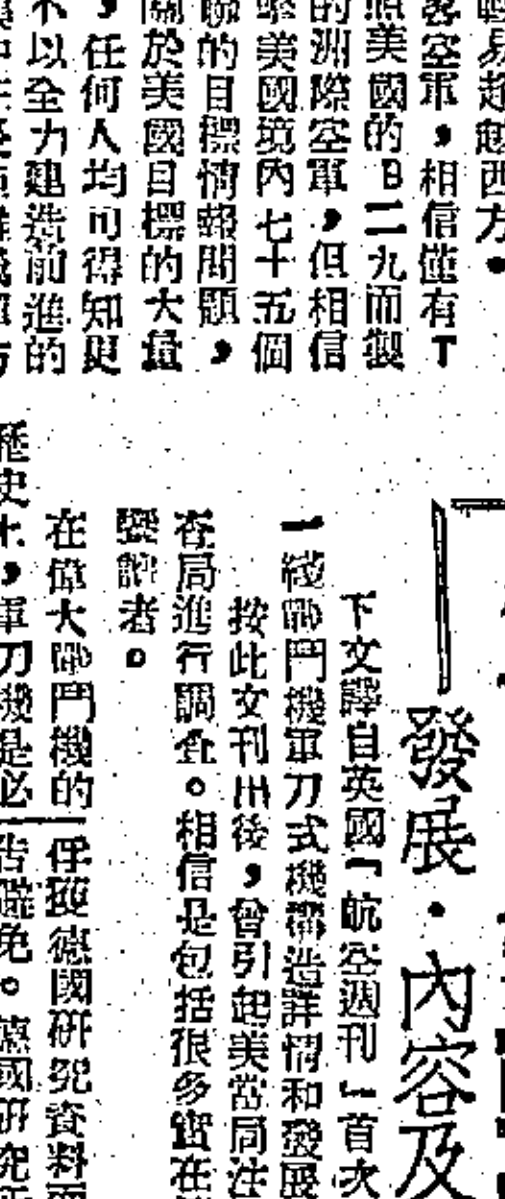 輕易超越西方。
客空軍，相信僅有T
照美國的B二九而製
的洲際空軍，但相信
擊美國境內七十五個
聯的目標情報問題，
關於美國目標的大量
，任何人均可得知更
不以全力建造前進的
發展・內容及
下文譯自英國「航空週刊」首次
一綫戰鬥機軍刀式機構造詳情和發展
按此文刊出後，曾引起美當局注
查局進行調查。相信是包括很多實在
饗讀者。
在偉大戰鬥機的
歷史上，軍刀機是必
俘獲德國研究資料而
告避免。德國研究